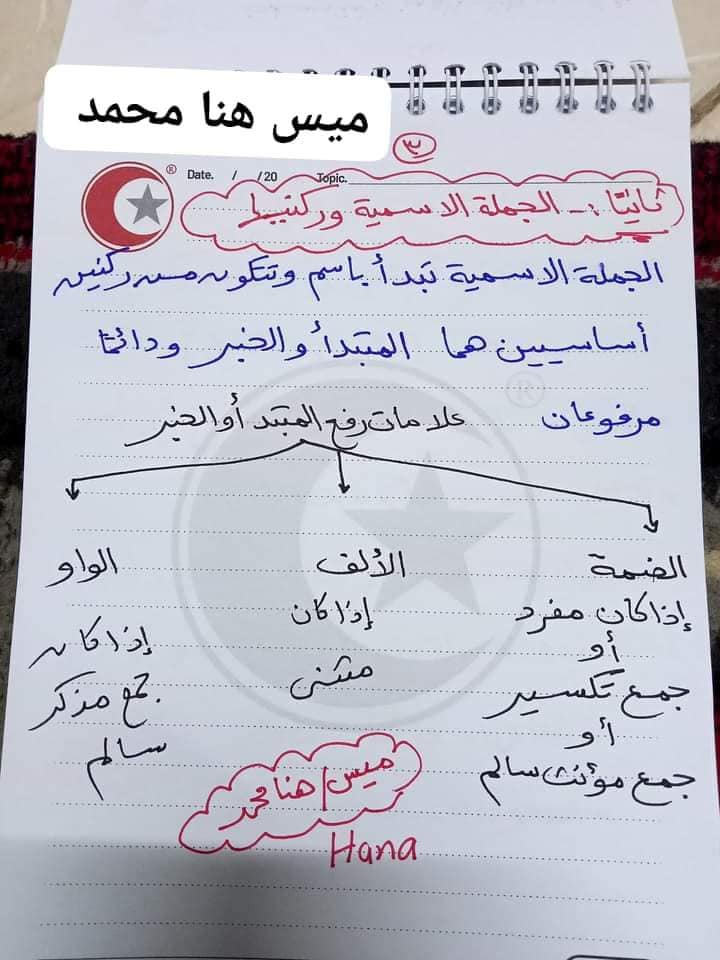 ميس هنا محمد
٣
Date. / /20 Topic.
ثانيًا :- الجملة الاسمية وركنيها
الجملة الاسمية تبدأ باسم وتتكون من ركنين
أساسيين هما المبتدأ والخبر ودائمًا
مرفوعان علامات رفع المبتدأ والخبر
الضمة الألف الواو
إذا كان مفرد إذا كان إذا كان
أو
جمع تكسير مثنى جمع مذكر
أو سالم
جمع مؤنث سالم
ميس / هنا محمد
Hana